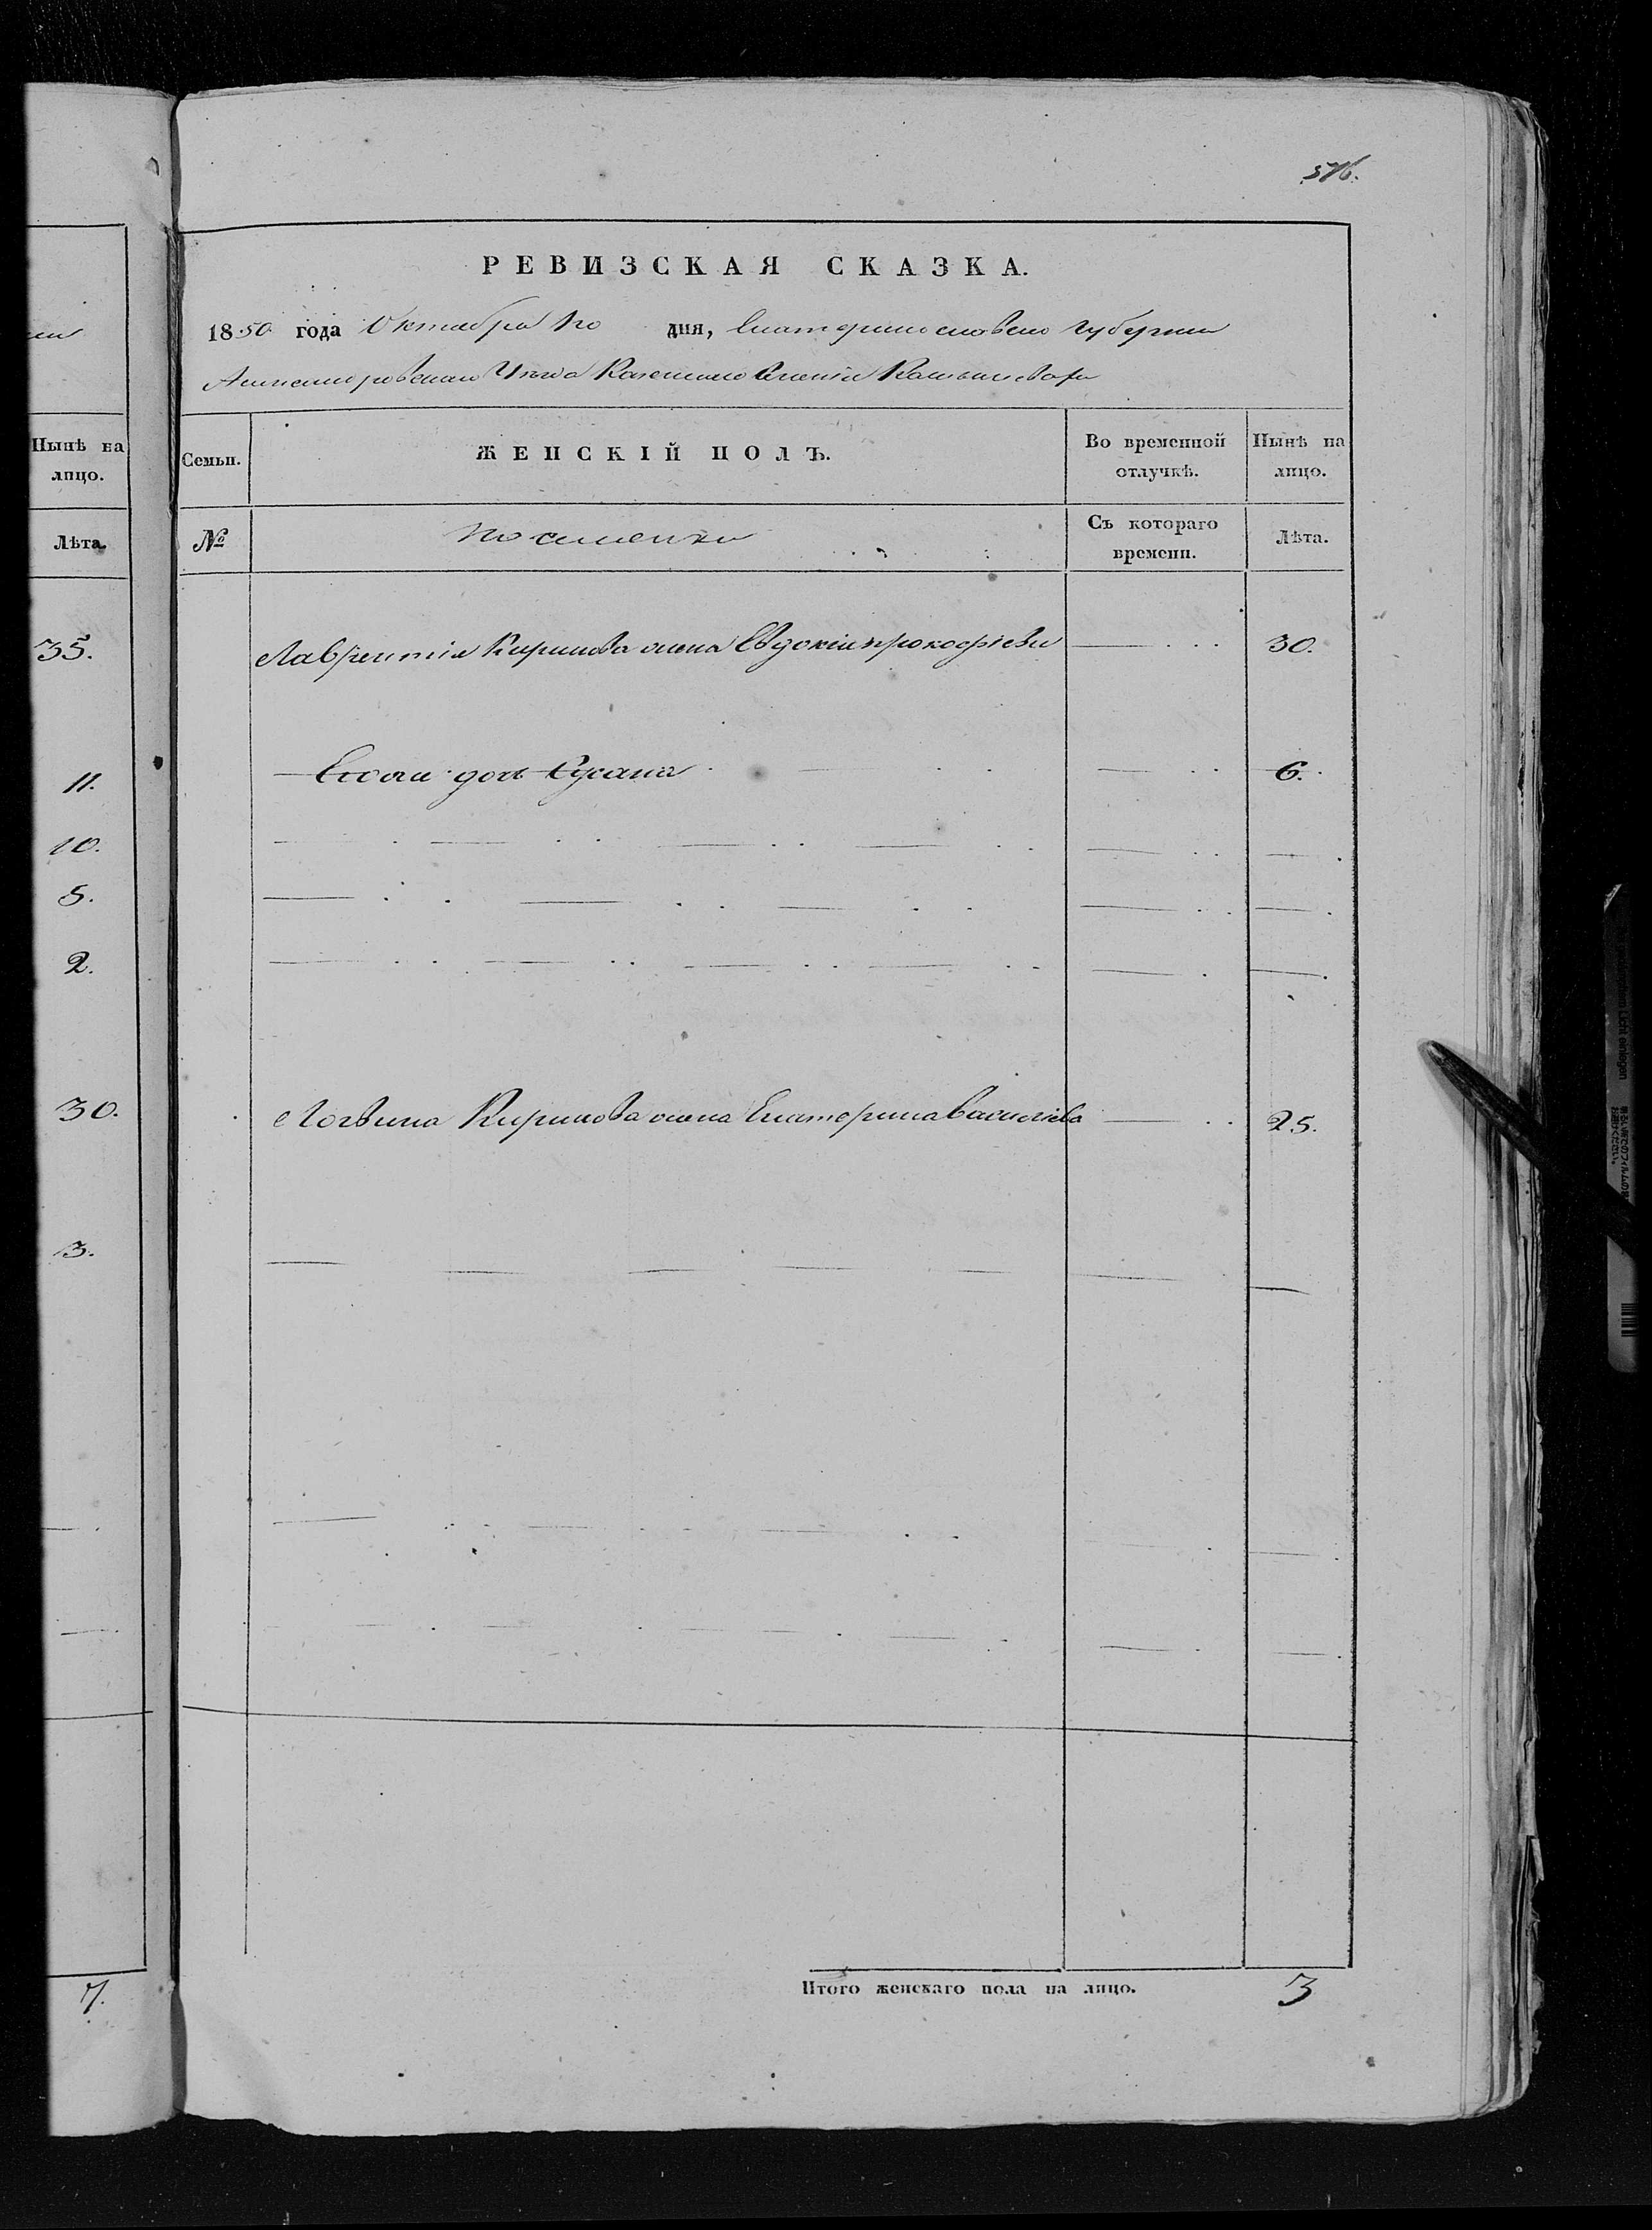 ми
Нынѣ на
лицо.
Лѣта.
35.
11.
10.
5.
2.
30.
3.
7.
576.
РЕВИЗСКАЯ СКАЗКА.
1850 года Октября дня, Екатеринославской Губернии
Александровскаго Уѣзда Казеннаго Селенія
Семьи.
ЖЕНСКІЙ ПОЛЪ.
Во временной
отлучкѣ.
Нынѣ на
лицо.
№
Съ котораго
времени.
Лѣта.
Лаврентія Кирилова жена Евдокія Прокофіева 30.
Его дочь Сусана 6.
Логвина Кирилова жена Екатерина Василіева 25.
Итого женскаго пола на лицо. 3